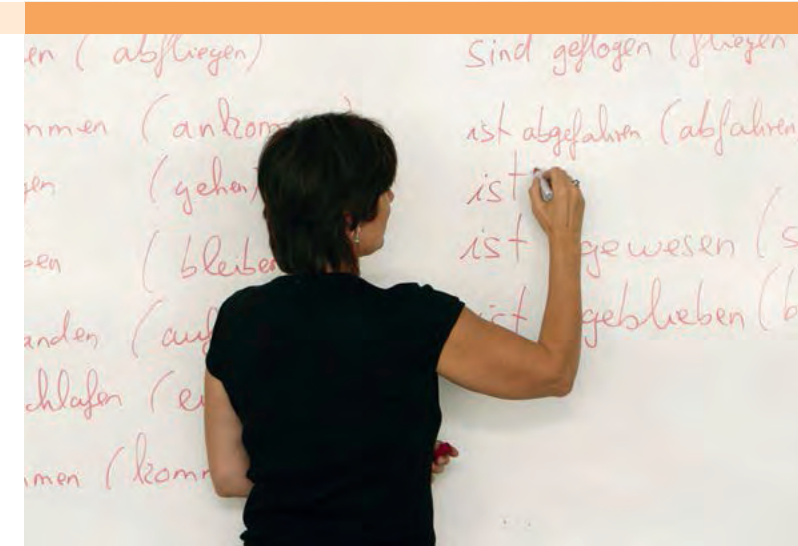 en (abfliegen)
mmen (ankom
gen (gehen)
ben (bleiben
anden (auf
chlafen (e
mmen (komm
sind geflogen (fliegen
ist abgefahren (abfahren
ist
ist gewesen (s
ist geblieben (b